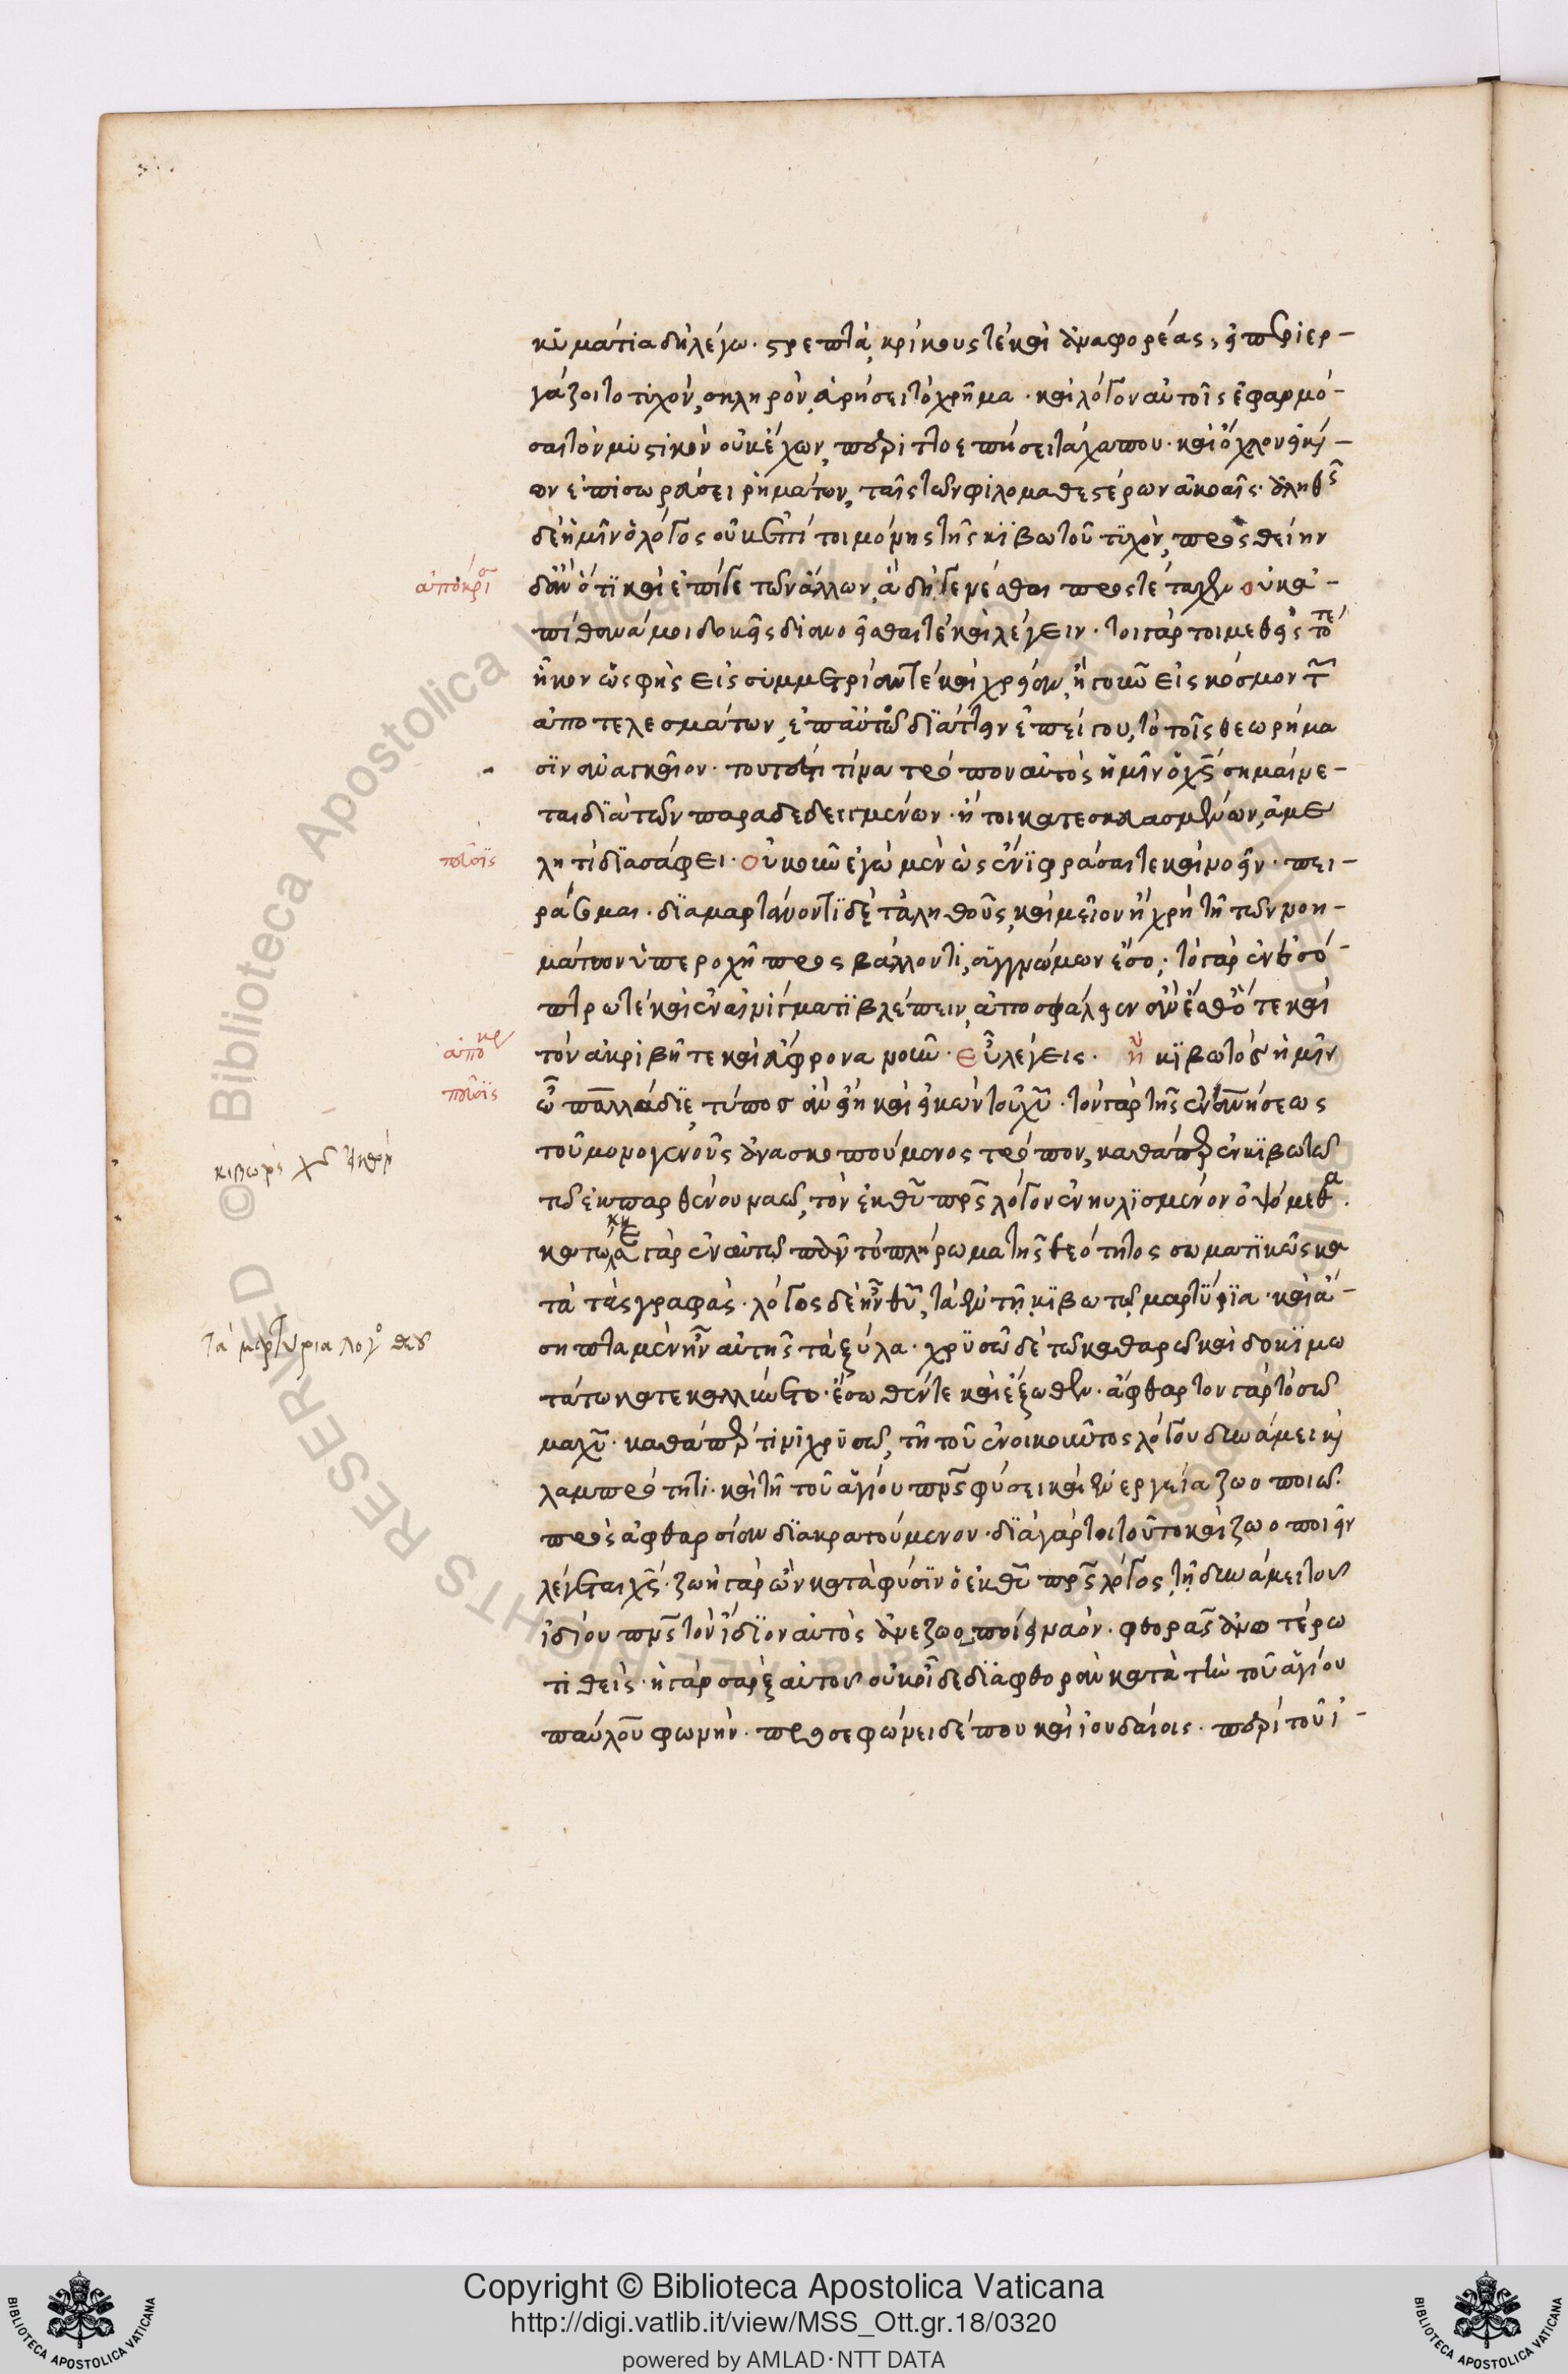 κυμάτια δὴ λέγω· στρεπτὰ, κρίκους τε καὶ ἀναφορέας, εἰ περιερ-
γάζοιτο τυχὸν, σκληρὸν εὑρήσει τὸ χρῆμα· καὶ λόγον αὐτοῖς ἐφαρμό-
σαι τὸν μυστικὸν οὐκ ἔχων, περιττοεπήσει τάχα που· καὶ ὄχλον εἰκαῖ-
ον ἐπισωρεύσει ῥημάτων, ταῖς τῶν φιλομαθεστέρων ἀκοαῖς· ἀληθὴς
δὲ ἡμῖν ὁ λόγος οὐκ ἐπί τοι μόνης τῆς κιβωτοῦ τυχὸν, προσθείην
ἀπόκρισ
δ' ἂν ὅτι καὶ ἐπί γε τῶν ἄλλων, ἃ δὴ γενέσθαι προστέταχεν οὐκ ἀ-
πίθανά μοι δοκεῖς διανοεῖσθαί τε καὶ λέγειν· τοιγάρτοι μεθεὶς τό τε
ἧκον ὡς φὴς εἰς συμμετρίαν τε καὶ χρῆσιν, ἤγουν εἰς κόσμον τῶν
ἀποτελεσμάτων, ἐπ' αὐτὸ δὴ ἄττειν ἐπείγου, τὸ τοῖς θεωρήμα
σιν ἀναγκαῖον· τουτέστι τίνα τρόπον αὐτὸς ἡμῖν ὁ χς σημαίνε-
ται διὰ τῶν παραδεδειγμένων· ἤτοι κατεσκευασμένων, ἀμε
λητὶ διασάφει· Οὐκοῦν ἐγὼ μὲν ὡς ἔνι φράσαι τε καὶ νοεῖν· πει-
ράσομαι· διαμαρτάνοντι δὲ τἀληθοῦς, καὶ μεῖον ἢ χρὴ τῇ τῶν νοη-
μάτων ὑπεροχῇ προσβάλλοντι, συγγνώμων ἔσο· τὸ γὰρ ἐν ἐσό-
πτρῳ τε καὶ ἐν αἰνίγματι βλέπειν, ἀποσφάλλειεν ἂν ἔσθ' ὅτε καὶ
τὸν ἀκριβῆ τε καὶ ἀρτίφρονα νοῦν· εὖ λέγεις· ἡ κιβωτὸς ἡμῖν
ὦ παλλάδιε, τύπος ἂν εἴη καὶ εἰκὼν τοῦ χυ· τὸν γὰρ τῆς ἐνανπήσεως
τοῦ μονογενοῦς ἀνασκοπούμενος τρόπον, καθάπερ ἐν κιβωτῷ
τῷ ἐκ παρθένου ναῷ, τὸν ἐκ θυ πρς λόγον ἐνηυλισμένον ὀψόμεθα·
κατῴκηκε γὰρ ἐν αὐτῷ πᾶν τὸ πλήρωμα τῆς θεότητος σωματικῶς κα
τὰ τὰς γραφάς· λόγος δὲ ἦν θυ, τὰ ἐν τῇ κιβωτῷ μαρτύρια· καὶ ἄ-
τὰ μαρτύρια λογο θεου
σηπτα μὲν ἦν αὐτῆς τὰ ξύλα· χρυσῷ δὲ τῷ καθαρῷ καὶ δοκιμω
τάτῳ κατεκαλλύνετο· ἔσωθέν τε καὶ ἔξωθεν· ἄφθαρτον γὰρ τὸ σῶ
μα χυ· καθάπερ τινὶ χρυσῷ, τῇ τοῦ ἐνοικοῦντος λόγου δυνάμει καὶ
λαμπρότητι· καὶ τῇ τοῦ ἁγίου πνς φύσει καὶ ἐνεργείᾳ ζωοποιῷ
πρὸς ἀφθαρσίαν διακρατούμενον· διὰ γάρ τοι τοῦτο καὶ ζωοποιεῖν
λέγεται χς· ζωὴ γὰρ ὢν κατὰ φύσιν ὁ ἐκ θυ πρς λόγος, τῇ δυνάμει τοῦ
ἰδίου πνς τὸν ἴδιον αὐτὸς ἀνεζωοποίει ναόν· φθορᾶς ἀμείνω
τιθείς· ἡ γὰρ σὰρξ αὐτοῦ οὐκ οἶδε διαφθορὰν κατὰ τὴν τοῦ ἁγίου
παύλου φωνήν· προσεφώνει δέ που καὶ ἰουδαίοις· περὶ τοῦ ἰ-
Copyright © Biblioteca Apostolica Vaticana
http://digi.vatlib.it/view/MSS_Ott.gr.18/0320
powered by AMLAD·NTT DATA
BIBLIOTECA APOSTOLICA VATICANA
BIBLIOTECA APOSTOLICA VATICANA